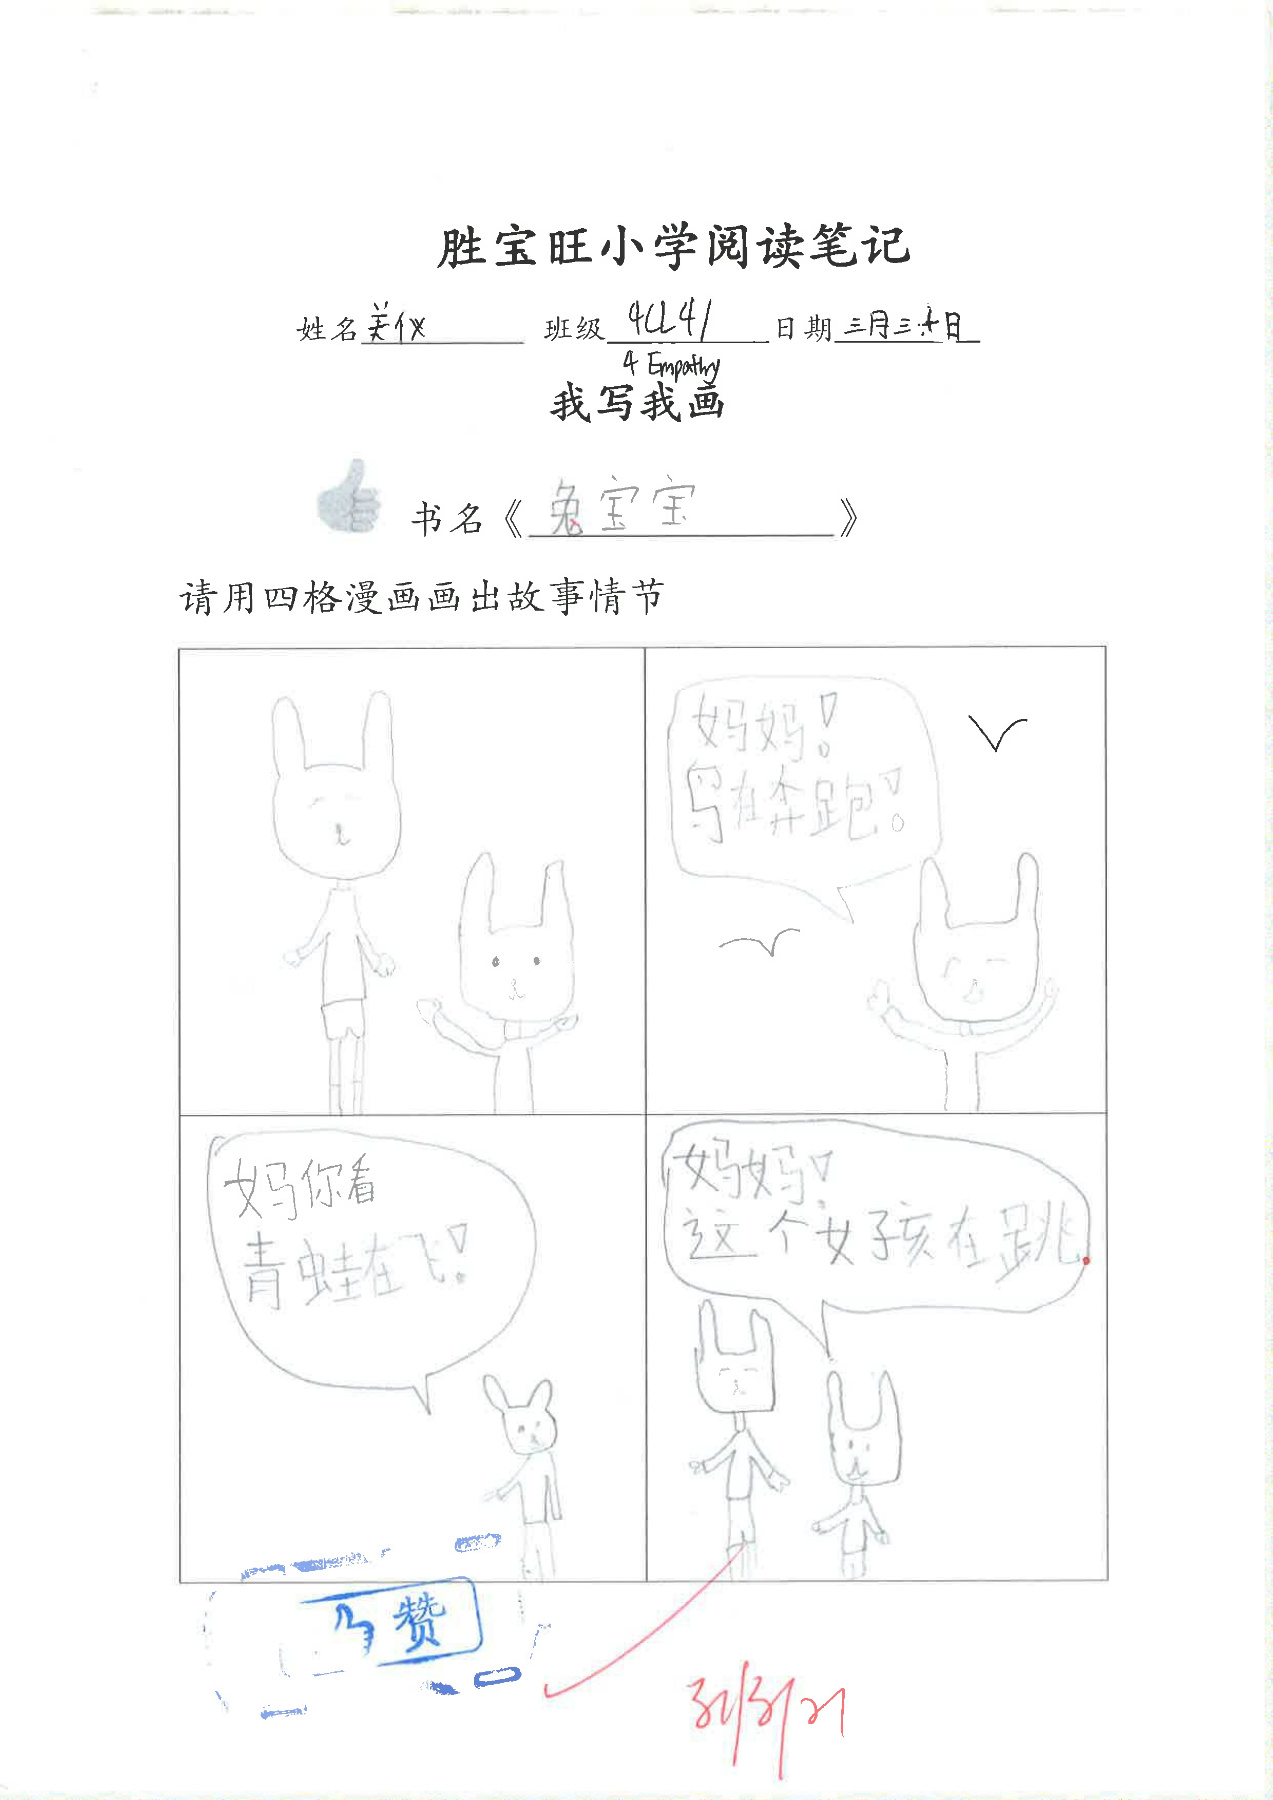 胜宝旺小学阅读笔记
姓名美仪 班级4CL4/ 日期三月三十日
4 Empathy
我写我画
书名《兔宝宝》
请用四格漫画画出故事情节
妈妈!
鸟在奔跑!
妈你看
青蛙在飞!
妈妈!
这个女孩在跳.
赞
31/3/21